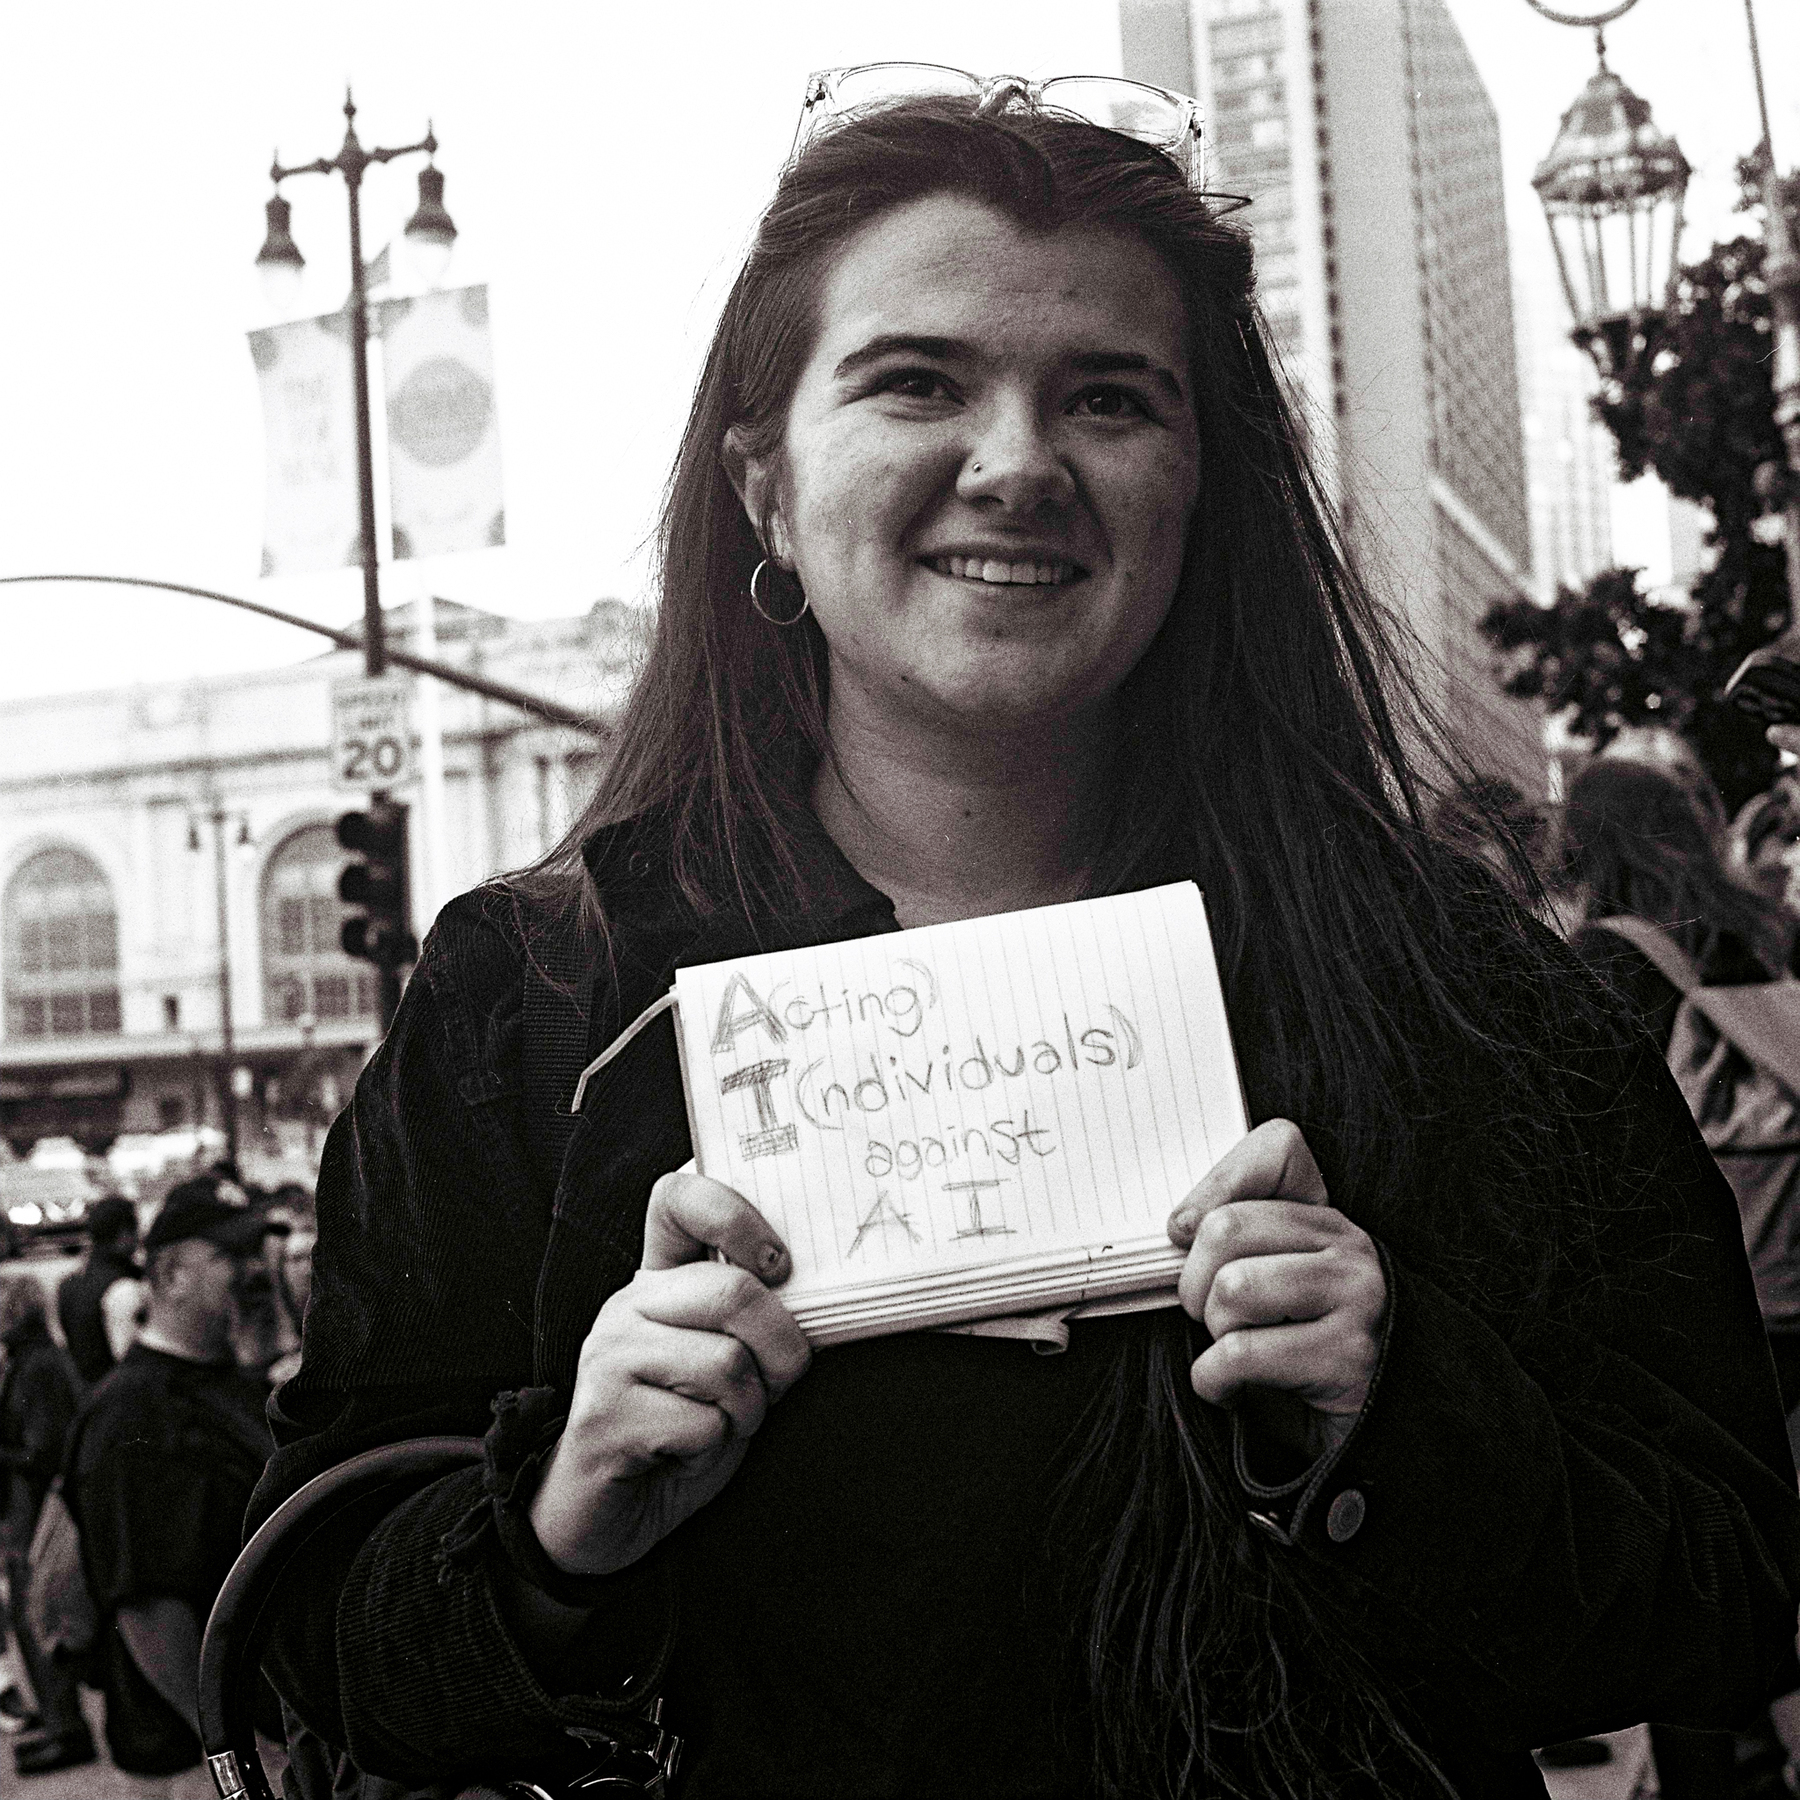 SPEED
LIMIT
20
A(cting)
I(ndividuals)
against
AI